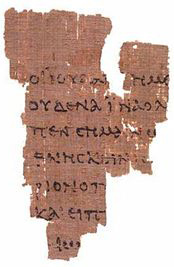 ΟΙ ΙΟΥΔΑΙ ΗΜ
ΟΥΔΕΝΑ ΙΝΑ Ο Λ
ΠΕΝ ϹΗΜΑΙΝΩ
ΘΝΗϹΚΕΙΝ ΙϹ
ΡΙΟΝ Ο Π
ΚΑΙ ΕΙΠ